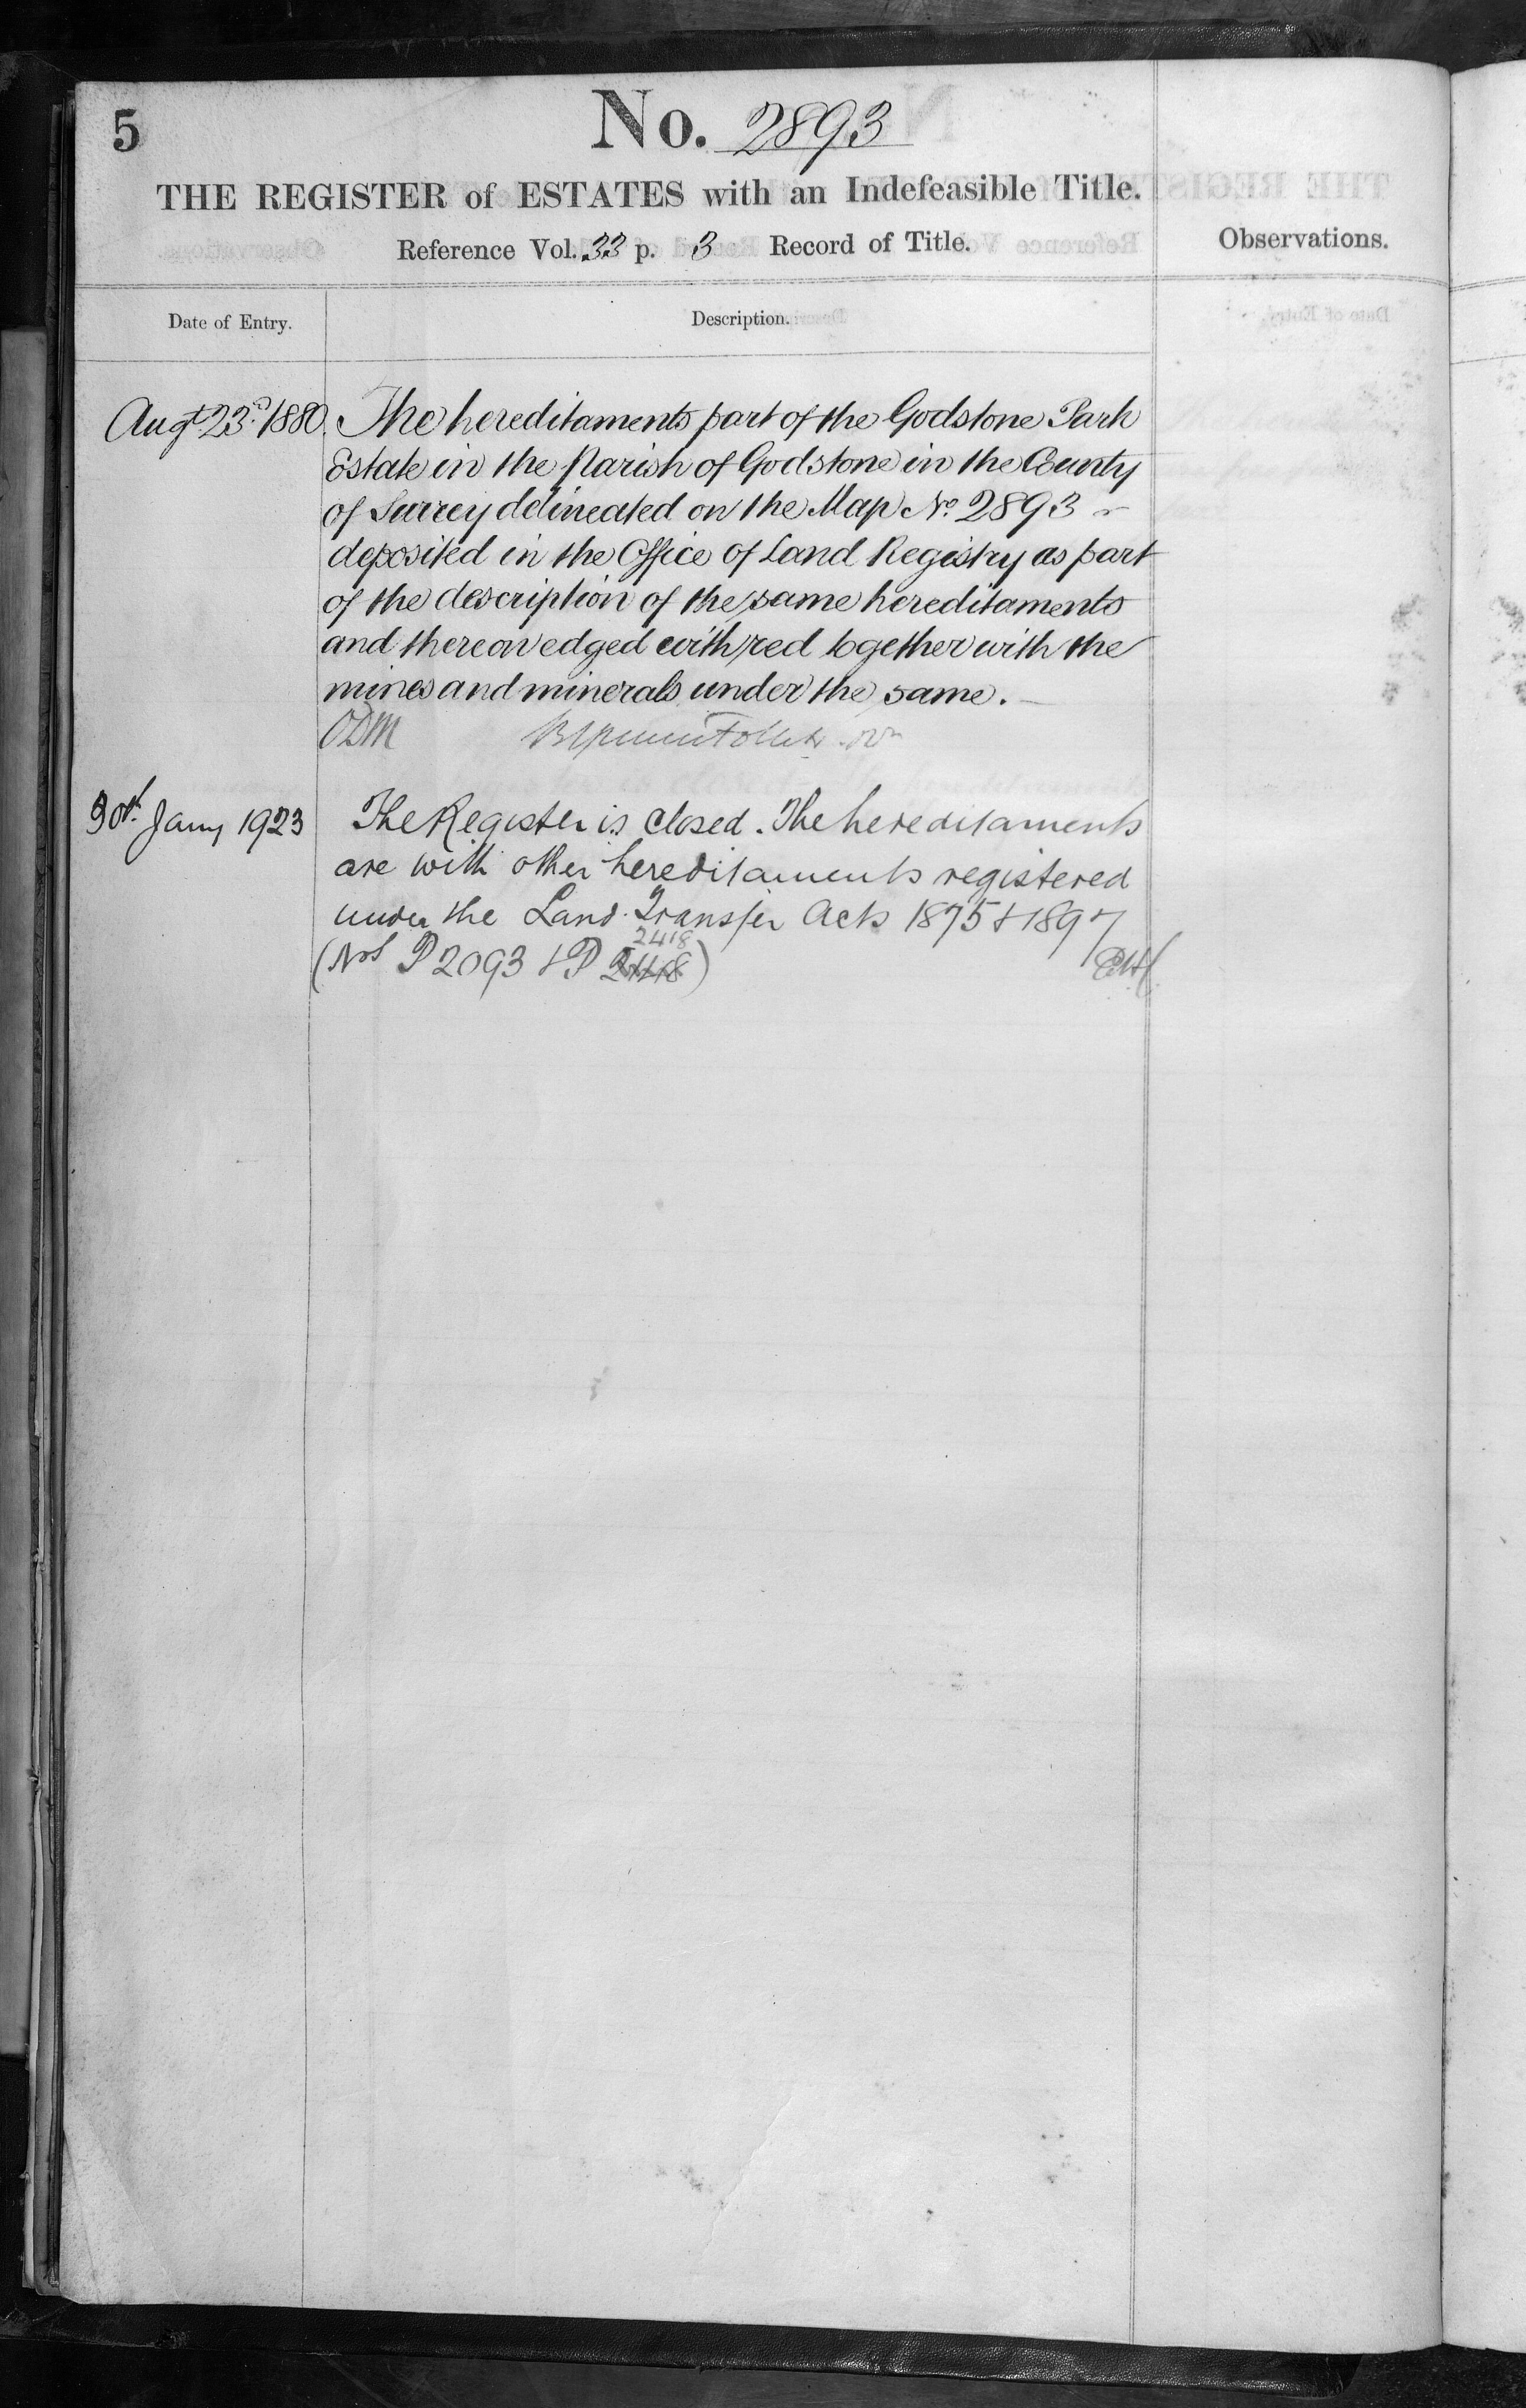 5
No. 2893
THE REGISTER of ESTATES with an Indefeasible Title.
Reference Vol. 33 p. 3 Record of Title.
Observations.
Date of Entry.
Description.
Augt. 23d. 1880. The hereditaments part of the Godstone Park
Estate in the Parish of Godstone in the County
of Surrey delineated on the Map No. 2893
deposited in the Office of Land Registry as part
of the description of the same hereditaments
and thereon edged with red together with the
mines and minerals under the same.
ODM
30th. Jany 1923 The Register is closed. The hereditaments
are with other hereditaments registered
under the Land Transfer Acts 1875 & 1897
2418
(Nos P2093 & P )